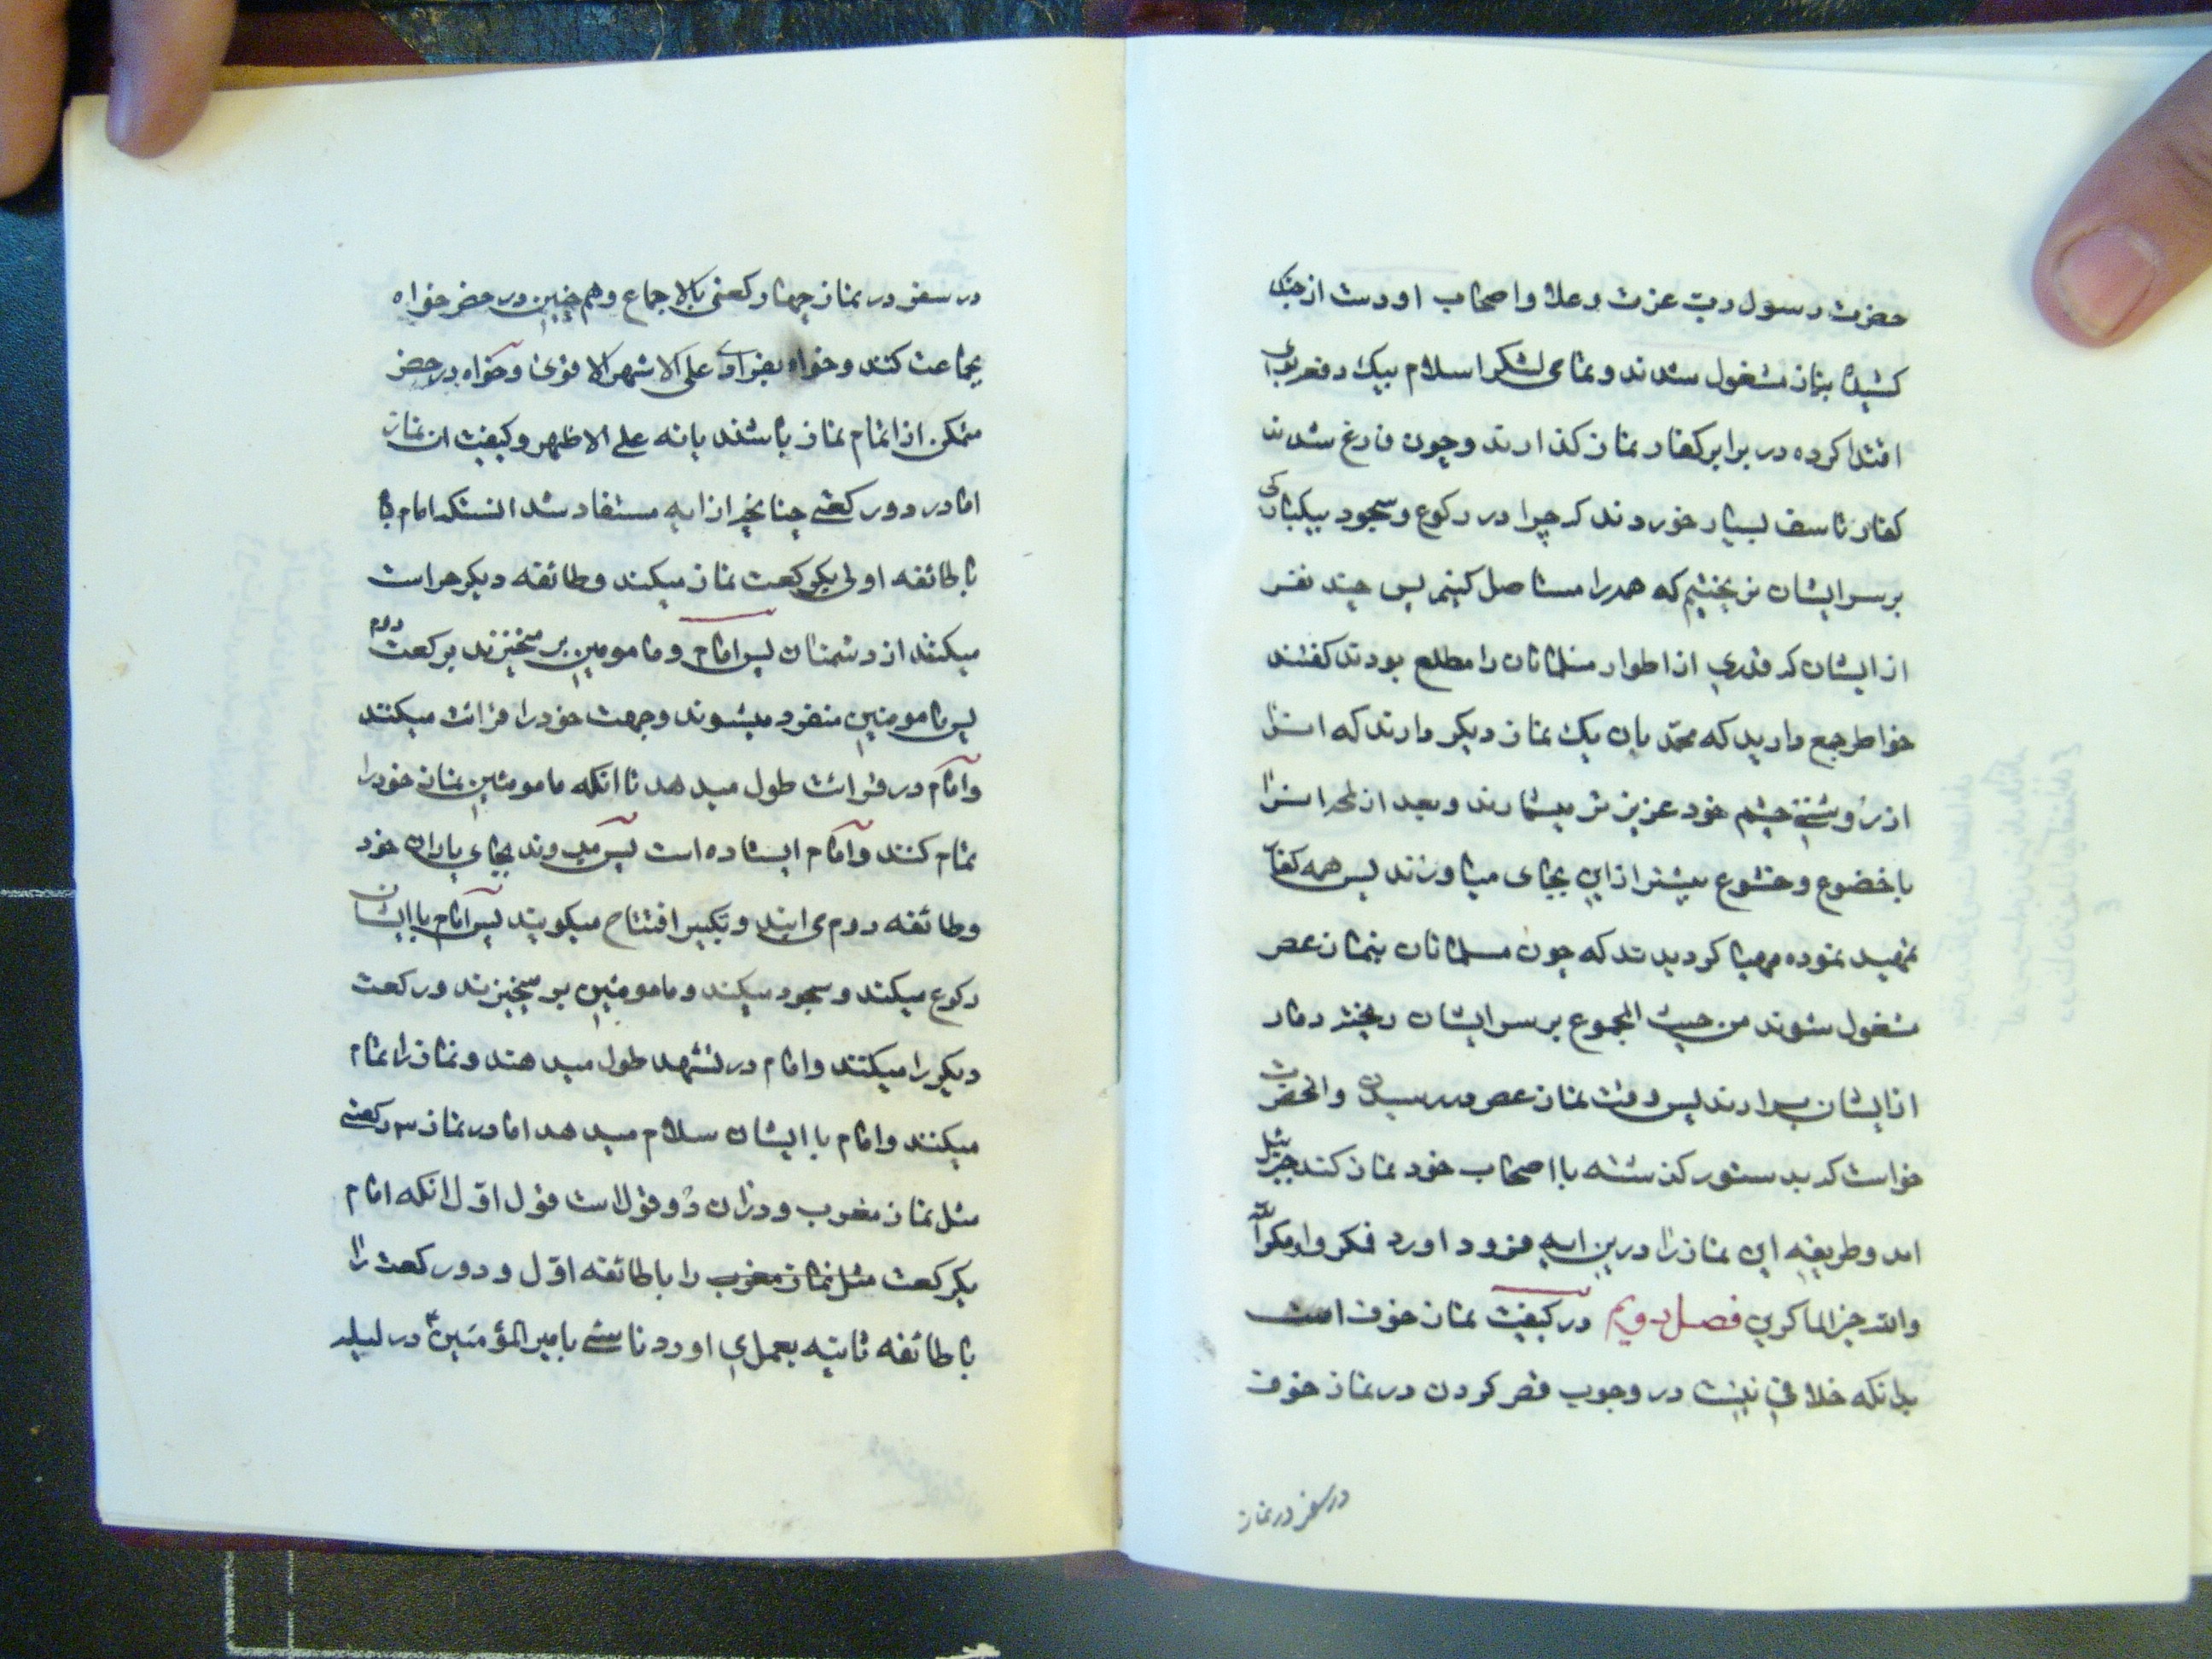 حضرت رسول رب عزت وعلا واصحاب او دست از جنک
کشیده بنماز مشغول شدند و تمامی لشکر اسلام بیک دفعه
اقتدا کرده در برابر کفار نماز کذارند وچون فارغ شدند
کفار تاسف بسیار خوردند که چرا در رکوع وسجود بیکبارکی
بر سر ایشان نریختیم که همه را مستاصل کنیم پس چند نفر
از ایشان که قدری از اطوار مسلمانان را مطلع بودند کفتند
خواطر جمع دارید که محمد یان یک نماز دیکر دارند که انرا
از روشنی چشم خود عزیز تر میشمارند و بعد از لمحه انرا
با خضوع و خشوع بیشتر از این بجای میاورند پس همه کفار
تمهید نموده مهیا کردیدند که چون مسلمانان بنماز عصر
مشغول شوند من حیث المجموع بر سر ایشان ریخته دمار
از ایشان برارند پس وقت نماز عصر در رسید وانحضرت
خواست که بدستور کذشته با اصحاب خود نماز کند جبرئیل
امد وطریقه این نماز را درین ایه فرود اورد فمکروا ومکر الله
والله خیر الماکرین فصل دویم در کیفیت نماز خوف است
بدانکه خلافی نیست در وجوب قصر کردن در نماز خوف
در سفر در نماز
در سفر در نماز چهار رکعتی بالاجماع وهم چنین در حضر خواه
بجماعت کنند و خواه بفرادی علی الاشهر الاقوی وخواه در حضر
متمکن از اتمام نماز باشند یا نه علی الاظهر وکیفیت ان نماز
اما در دو رکعتی چنانچه از ایه مستفاد شد انستکه امام با
با طائفه اولی یکرکعت نماز میکند وطائفه دیکر حراست
میکنند از دشمنان پس امام و مامومین بر میخیزند برکعت دوم
پس مامومین منفرد میشوند وجهت خود را قرائت میکنند
وامام در قرائت طول میدهد تا انکه مامومین نماز خود را
تمام کنند وامام ایستاده است پس میروند بجای یاران خود
وطائفه دوم می ایند وتکبیر افتتاح میکویند پس امام با ایشان
رکوع میکند وسجود میکند ومامومین بر میخیزند ورکعت
دیکر را میکنند وامام در تشهد طول میدهند ونماز را تمام
میکنند وامام با ایشان سلام میدهد اما در نماز سه رکعتی
مثل نماز مغرب ودران دو قول است قول اول انکه امام
یکرکعت مثل نماز مغرب را با طائفه اول و دو رکعت را
با طائفه ثانیه بعمل اورد تاسی بامیر المؤمنین ع در لیله